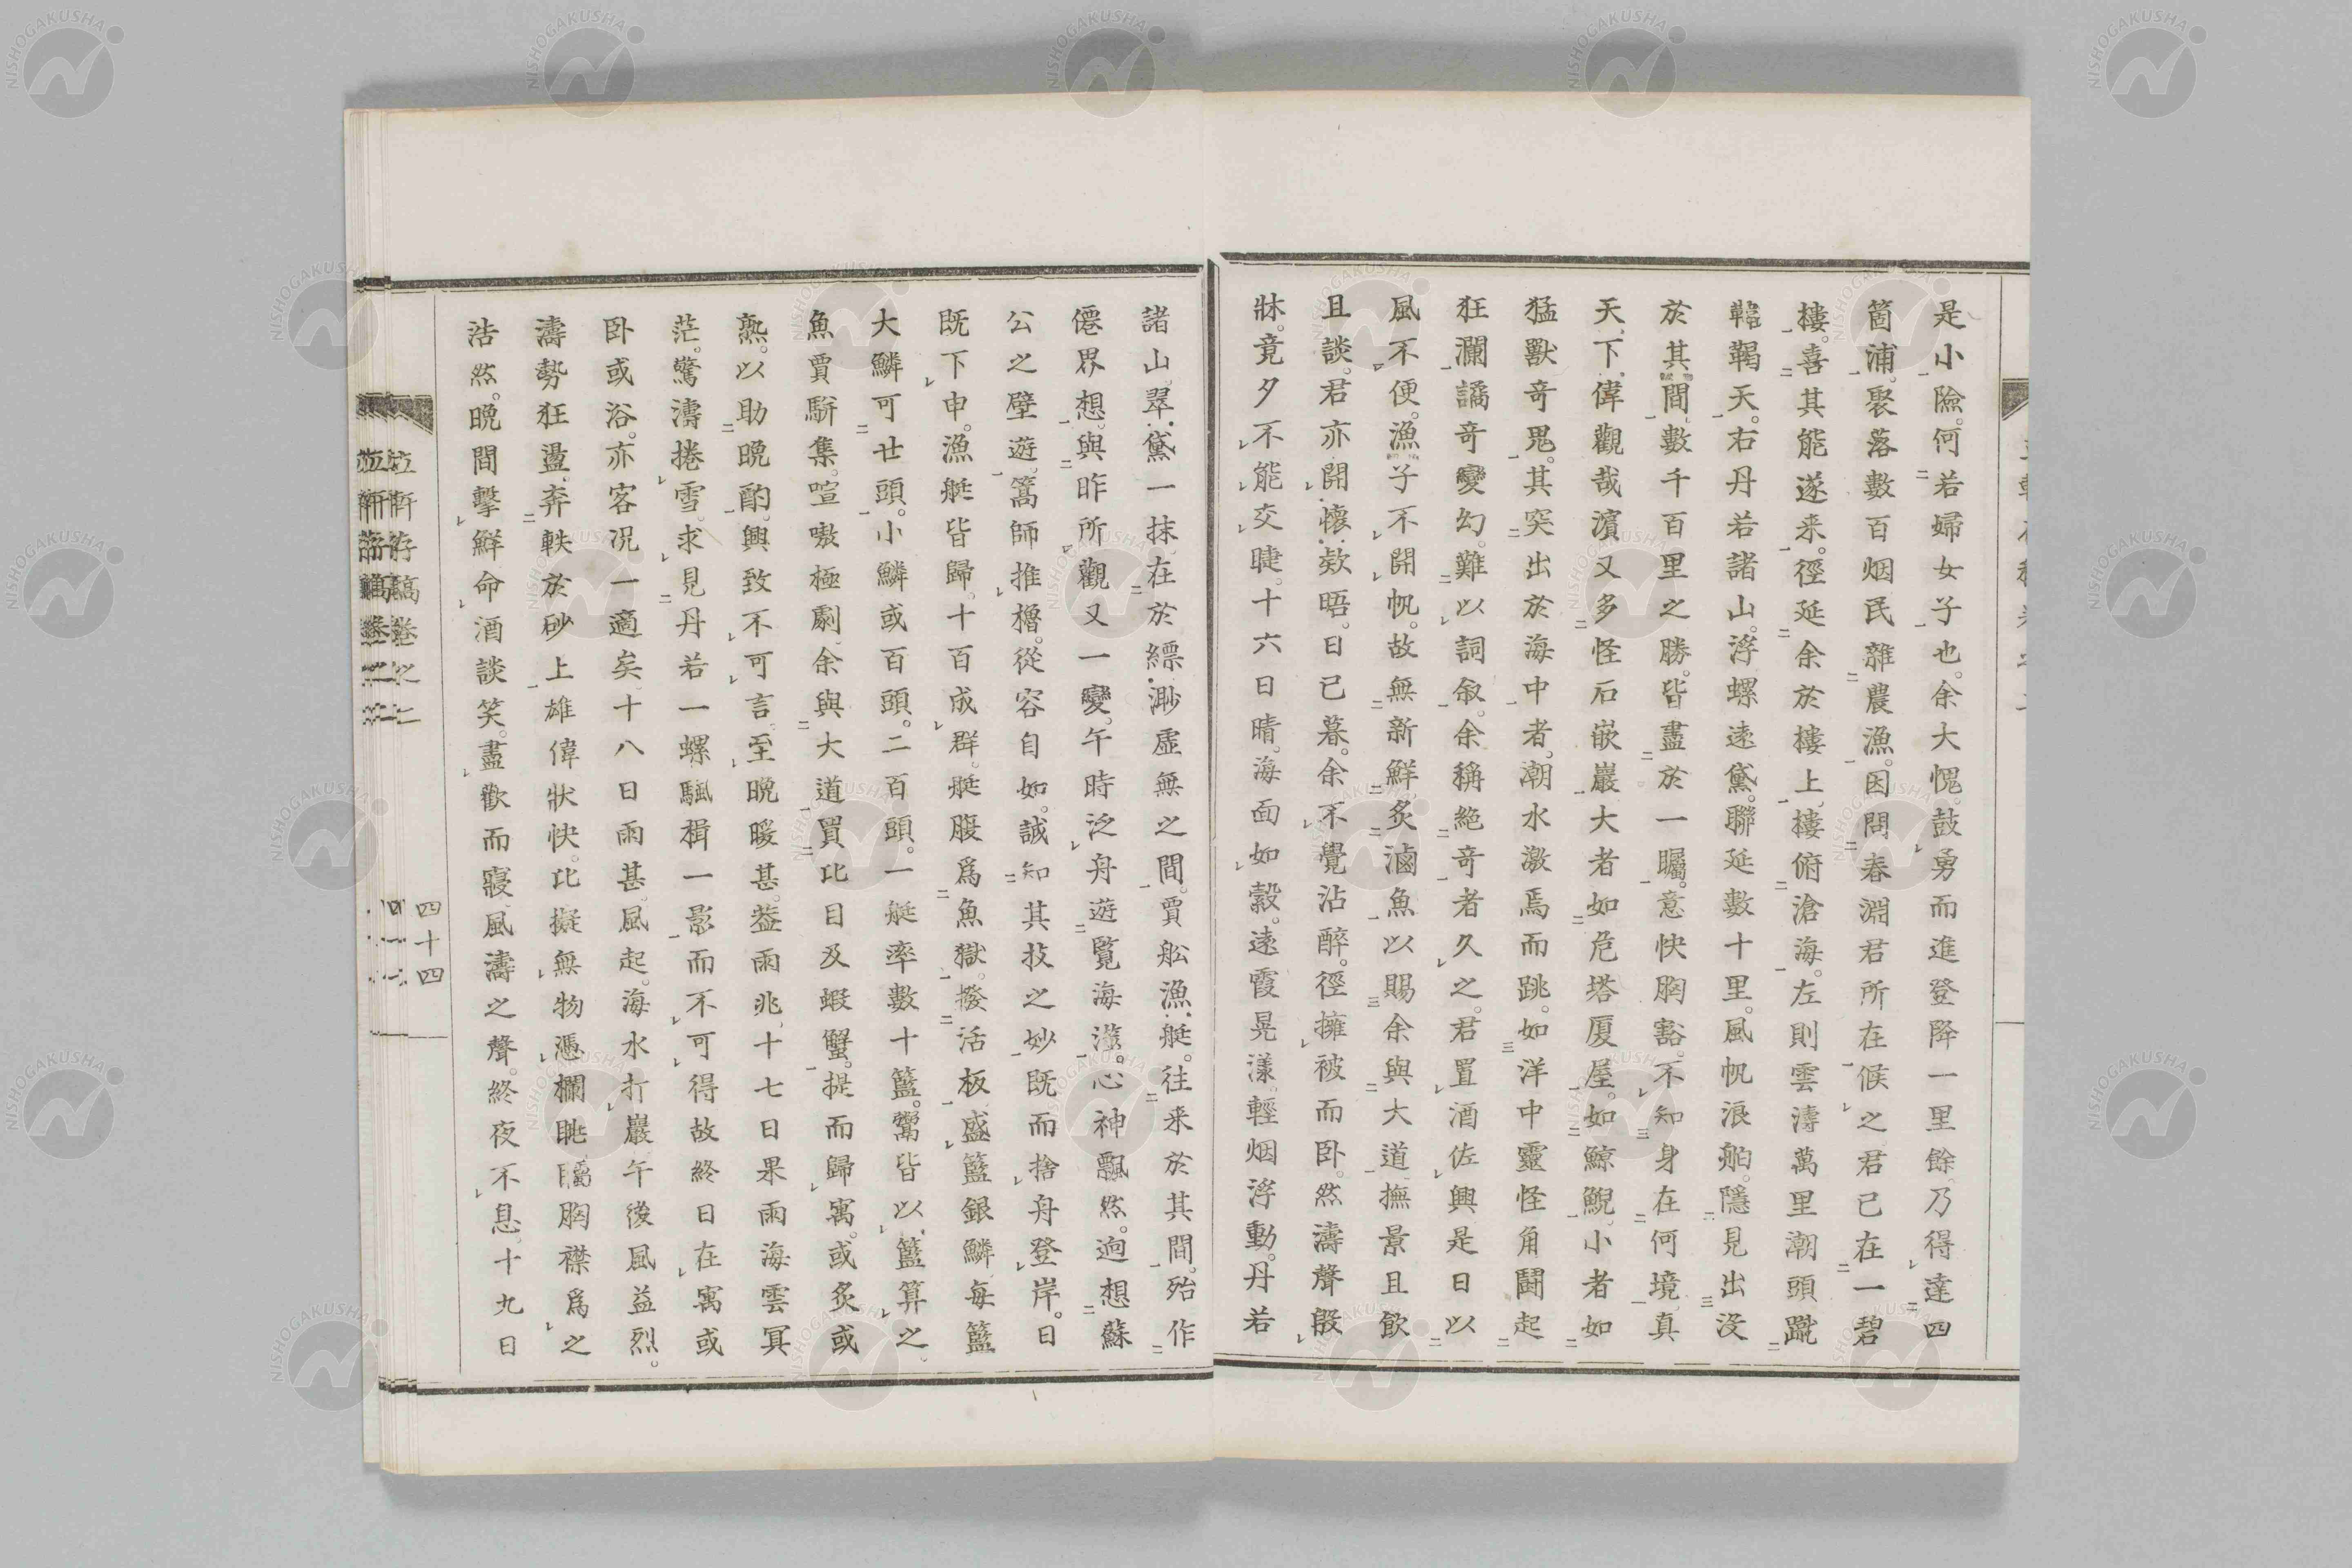 是小險。何若婦女子也。余大愧。鼓勇而進登降一里餘。乃得達四
箇浦。聚落數百烟民雜農漁。因問春淵君所在候之君已在一碧
樓。喜其能遂来。徑延余於樓上。樓俯滄海。左則雲濤萬里潮頭蹴
天。右丹若諸山。浮螺遠黛。聯延數十里。風帆浪舶。隱見出没
於其間。數千百里之勝。皆盡於一矚。意快胸豁。不知身在何境。真
天下偉觀哉濵又多怪石嵌巖大者如危塔厦屋。如鯨鯢。小者如
猛獸奇鬼。其突出於海中者。潮水激焉而跳。如洋中靈怪角鬪起
狂瀾譎奇變幻。難以詞叙。余稱絶奇者久之。君置酒佐興是日以
風不便。漁子不開帆。故無新鮮。炙滷魚以賜余與大道撫景且飲
且談。君亦開懷欵晤。日已暮。余不覺沾醉。徑擁被而卧。然濤聲殷
牀。竟夕不能交睫。十六日晴。海面如縠。遠霞晃漾。輕烟浮動。丹若
諸山。翠黛一抹在於縹渺虛無之間。賈舩漁艇。往来於其間。殆作
僊界想。與昨所觀又一變。午時泛舟遊覧海灣。心神飄然。逈想蘇
公之壁遊。篙師推櫓。從容自如。誠知其技之妙既而捨舟登岸。日
既下申。漁艇皆歸。十百成群。艇腹爲魚獄。撥活板盛籃銀鱗毎籃
大鱗可廿頭。小鱗或百頭。二百頭。一艇率數十籃。鬻皆以籃算之。
魚賈駢集。喧嗷極劇余與大道買比目及蝦蟹。提而歸寓。或炙或
熟。以助晩酌。興致不可言。至晩暖甚。葢雨兆。十七日果雨海雲冥
茫。驚濤捲雪。求見丹若一螺颿楫一影而不可得故終日在寓或
卧或浴。亦客况一適矣十八日雨甚。風起。海水打巖午後風益烈。
濤勢狂盪。奔軼於砂上雄偉狀快。比擬無物憑欄眺矚胸襟爲之
浩然。晩間擊鮮命酒談笑。盡歡而寢。風濤之聲。終夜不息。十九日
存稿卷之二
四十四